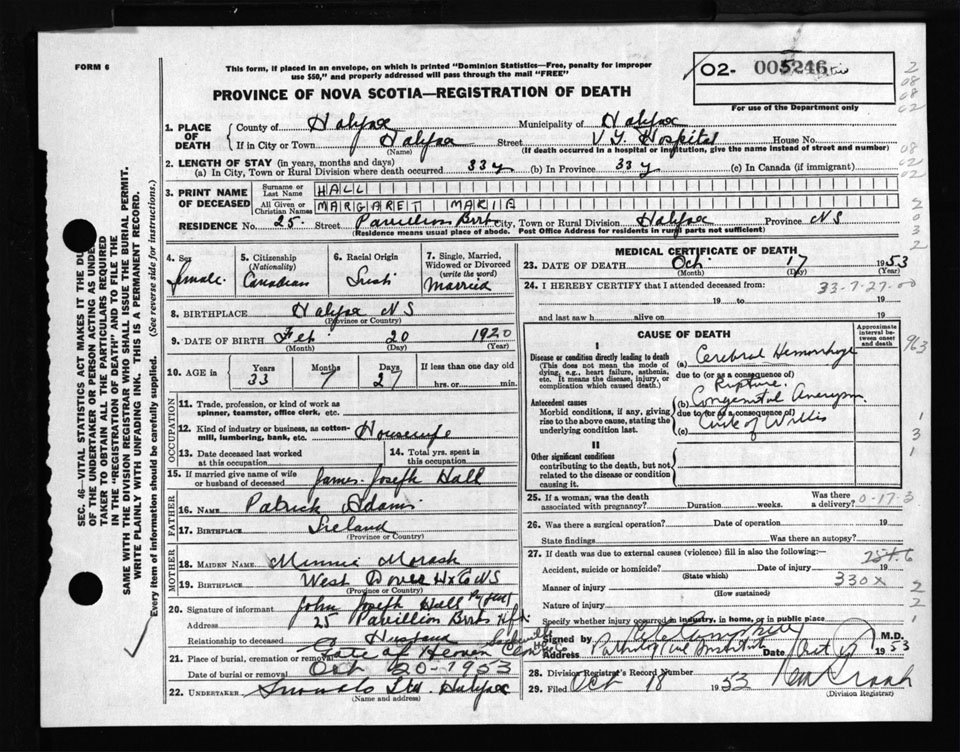 FORM 6
This form, if placed in an envelope, on which is printed "Dominion Statistics—Free, penalty for improper
use $50," and properly addressed will pass through the mail "FREE"
PROVINCE OF NOVA SCOTIA—REGISTRATION OF DEATH
02- 005246
For use of the Department only
2
08
08
02
08
02
2
0
3
2
SEC. 46—VITAL STATISTICS ACT MAKES IT THE DU
OF THE UNDERTAKER OR PERSON ACTING AS UNDE
TAKER TO OBTAIN ALL THE PARTICULARS REQUIRED
IN THE "REGISTRATION OF DEATH" AND TO FILE THE
SAME WITH THE DIVISION REGISTRAR WHO SHALL ISSUE THE BURIAL PERMIT.
WRITE PLAINLY WITH UNFADING INK. THIS IS A PERMANENT RECORD.
Every item of information should be carefully supplied. (See reverse side for instructions.)
1. PLACE OF DEATH County of Halifax Municipality of Halifax
If in City or Town Halifax Street V.G. Hospital House No.
(Name) (If death occurred in a hospital or institution, give the name instead of street and number)
2. LENGTH OF STAY (in years, months and days)
(a) In City, Town or Rural Division where death occurred 33 y (b) In Province 33 y (c) In Canada (if immigrant)
3. PRINT NAME OF DECEASED Surname or Last Name HALL
All Given or Christian Names MARGARET MARIE
RESIDENCE No. 25 Street Pavillion Brrks City, Town or Rural Division Halifax Province NS
(Residence means usual place of abode. Post Office Address for residents in rural parts not sufficient)
4. Sex female
5. Citizenship (Nationality) Canadian
6. Racial Origin Irish
7. Single, Married, Widowed or Divorced (write the word) Married
8. BIRTHPLACE Halifax NS
(Province or Country)
9. DATE OF BIRTH Feb 20 1920
(Month) (Day) (Year)
10. AGE in Years 33 Months 7 Days 27 If less than one day old
hrs. or min.
OCCUPATION
11. Trade, profession, or kind of work as
spinner, teamster, office clerk, etc.
12. Kind of industry or business, as cotton-
mill, lumbering, bank, etc. Housewife
13. Date deceased last worked
at this occupation
14. Total yrs. spent in
this occupation
15. If married give name of wife
or husband of deceased James Joseph Hall
FATHER
16. NAME Patrick Adams
17. BIRTHPLACE Ireland
(Province or Country)
MOTHER
18. MAIDEN NAME Minnie Morash
19. BIRTHPLACE West Dover Hx Co NS
(Province or Country)
20. Signature of informant John Joseph Hall
Address 25 Pavillion Brrks Hfx
Relationship to deceased Husband
21. Place of burial, cremation or removal Gate of Heaven Sackville
Date of burial or removal Oct 20-1953
22. UNDERTAKER Snows Ltd. Halifax
(Name and address)
MEDICAL CERTIFICATE OF DEATH
23. DATE OF DEATH Oct 17 1953
(Month) (Day) (Year)
24. I HEREBY CERTIFY that I attended deceased from: 33-7-27-00
19 to 19
and last saw h alive on 19
CAUSE OF DEATH
Approximate
interval be-
tween onset
and death
963
I
Disease or condition directly leading to death
(This does not mean the mode of
dying, e.g., heart failure, asthenia,
etc. It means the disease, injury, or
complication which caused death.)
(a) Cerebral Hemorrhage
due to (or as a consequence of)
Rupture
Antecedent causes
Morbid conditions, if any, giving
rise to the above cause, stating the
underlying condition last.
(b) Congenital Aneurysm
due to (or as a consequence of)
(c) Circle of Willis
1
3
1
II
Other significant conditions
contributing to the death, but not
related to the disease or condition
causing it.
25. If a woman, was the death
associated with pregnancy? Duration weeks. Was there
a delivery? 0-17-3
26. Was there a surgical operation? Date of operation 19
State findings Was there an autopsy?
27. If death was due to external causes (violence) fill in also the following:—
Accident, suicide or homicide? Date of injury 19
(State which)
Manner of injury 330x
(How sustained)
2
2
Nature of injury
Specify whether injury occurred in industry, in home, or in public place
1
Signed by M.D.
Address Pathological Institute Date Oct 1953
28. Division Registrar's Record Number
29. Filed Oct 18 1953
(Division Registrar)